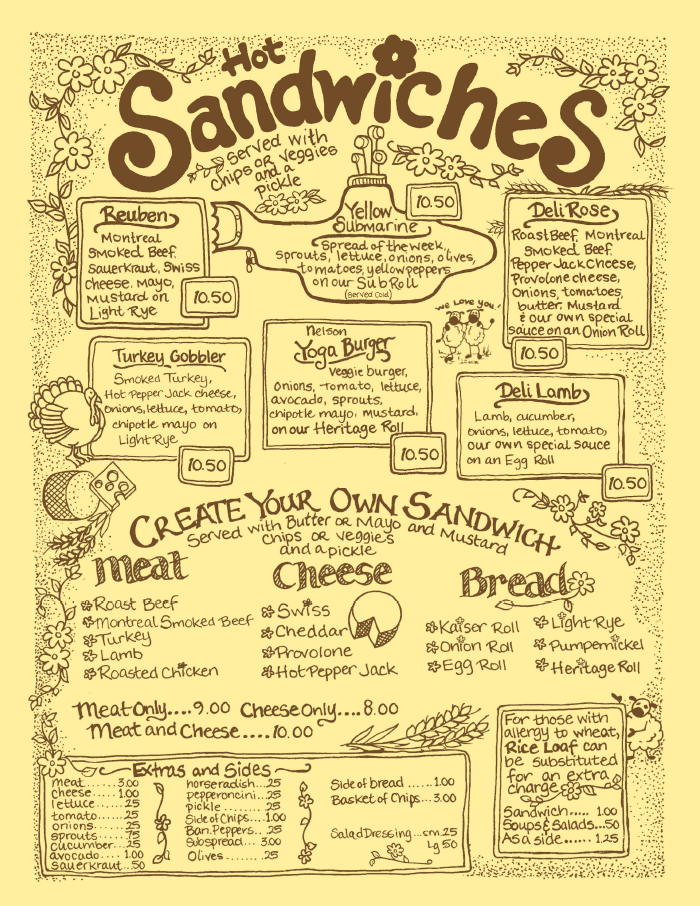 Hot
Sandwiches
Served with
Chips or Veggies
and a
pickle
Reuben
Montreal
Smoked Beef
Sauerkraut, Swiss
cheese, mayo,
Mustard on
Light Rye
10.50
Yellow
Submarine
10.50
Spread of the week,
sprouts, lettuce, onions, olives,
tomatoes, yellow peppers
on our Sub Roll
(Served Cold)
Deli Rose
Roast Beef, Montreal
Smoked Beef
Pepper Jack Cheese,
Provolone cheese,
Onions, tomatoes,
butter, Mustard
& our own special
sauce on an Onion Roll
10.50
We Love You!
Turkey Gobbler
Smoked Turkey,
Hot Pepper Jack cheese,
onions, lettuce, tomato,
chipotle mayo on
Light Rye
10.50
Nelson
Yoga Burger
Veggie burger,
Onions, Tomato, lettuce,
avocado, sprouts,
chipotle mayo, mustard,
on our Heritage Roll
10.50
Deli Lamb
Lamb, cucumber,
onions, lettuce, tomato,
our own special sauce
on an Egg Roll
10.50
Create Your Own Sandwich
Served with Butter or Mayo and Mustard
Chips or Veggies
and a pickle
Meat
Roast Beef
Montreal Smoked Beef
Turkey
Lamb
Roasted Chicken
Cheese
Swiss
Cheddar
Provolone
Hot Pepper Jack
Bread
Kaiser Roll
Onion Roll
Egg Roll
Light Rye
Pumpernickel
Heritage Roll
Meat Only....9.00 Cheese Only....8.00
Meat and Cheese.....10.00
Extras and Sides
meat......3.00
cheese....1.00
lettuce......25
tomato......25
onions......25
sprouts....75
cucumber...25
avocado....1.00
sauerkraut...50
horseradish...25
pepperoncini...25
pickle.......25
Side of Chips....1.00
Ban. Peppers...25
Subspread....3.00
Olives........25
Side of bread.......1.00
Basket of Chips...3.00
Salad Dressing...sm.25
Lg 50
For those with
allergy to wheat,
Rice Loaf can
be substituted
for an extra
charge
Sandwich..... 1.00
Soups & Salads...50
As a side...... 1.25